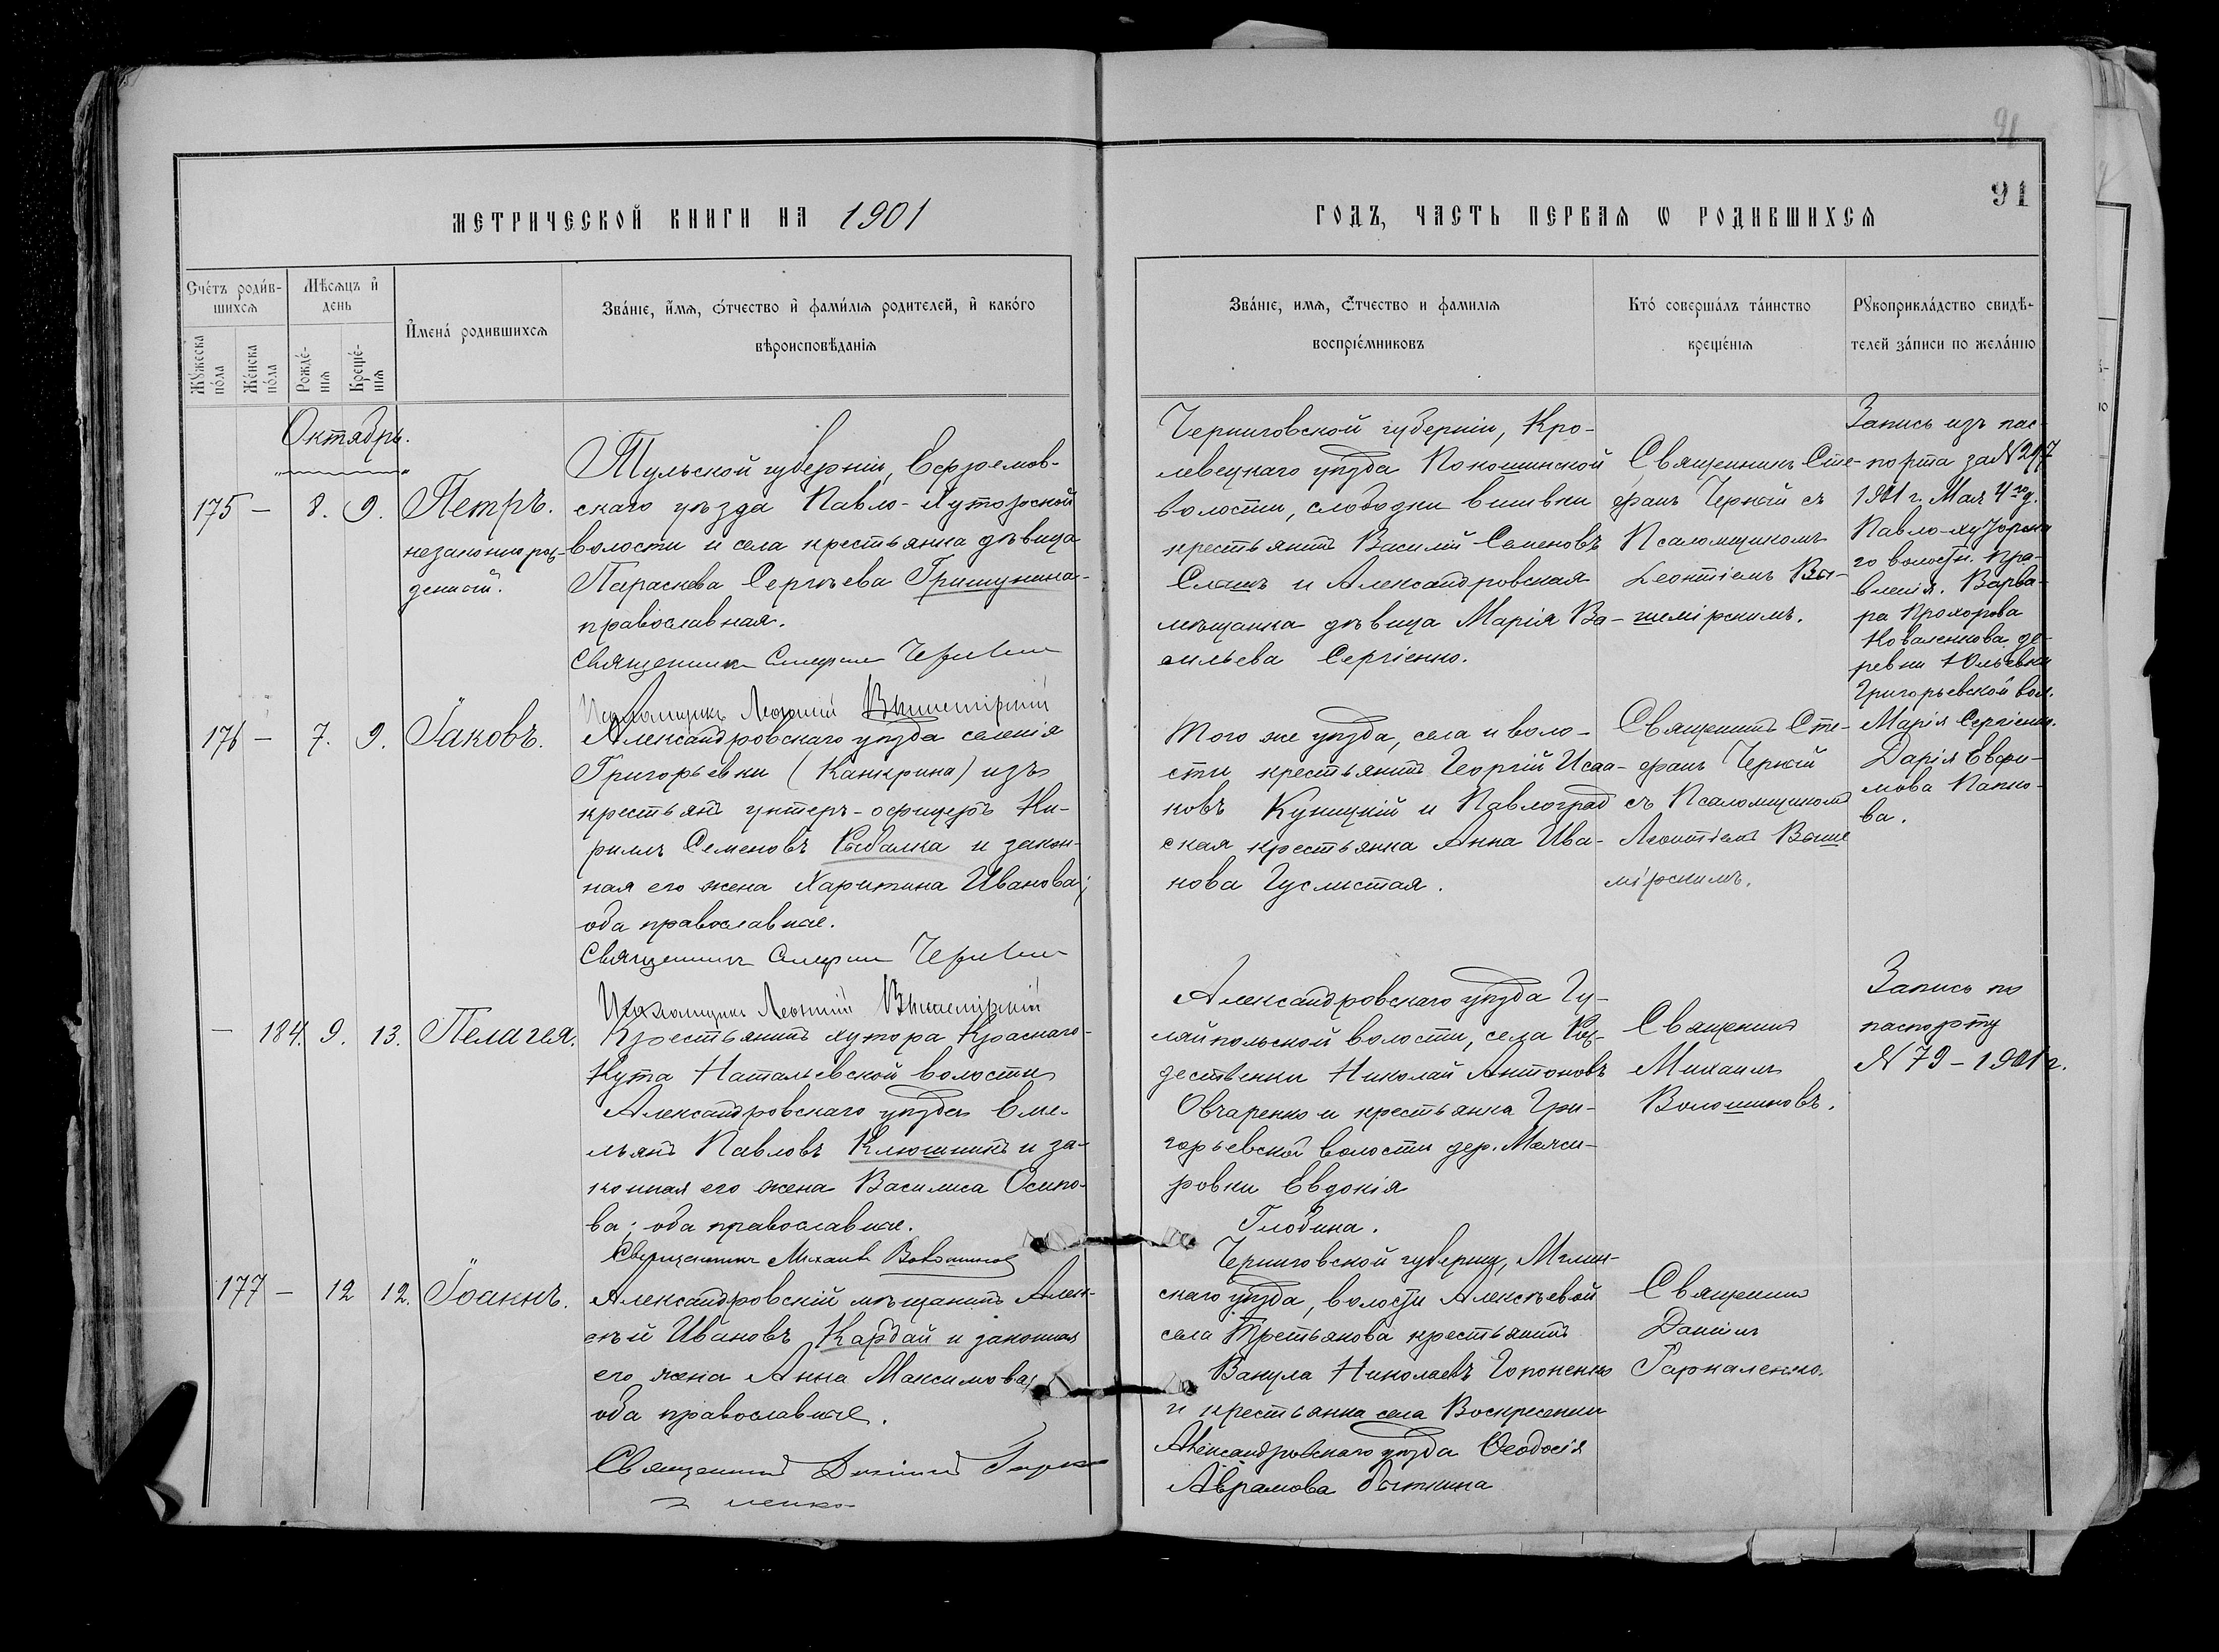 91
91
МЕТРИЧЕСКОЙ КНИГИ НА 1901
ГОДЪ, ЧАСТЬ ПЕРВАѦ Ѡ РОДИВШИХСѦ
Счетъ родив-
шихсѧ
Мужеска пола
Женска пола
Мѣсѧцъ и
день
Рожде-
нія
Креще-
нія
Имена родившихсѧ
Званіе, имѧ, отчество и фамиліѧ родителей, и какого
вѣроисповѣданіѧ
Званіе, имѧ, отчество и фамиліѧ
воспріемниковъ
Кто совершалъ таинство
крещеніѧ
Рукоприкладство свидѣ-
телей записи по желанію
Октябрь.
175 — 8. 9. Петръ.
незаконнорож-
денный.
Тульской губерніи, Ефремов-
скаго уѣзда Павло-Хуторской
волости и села крестьянка дѣвица
Параскева Сергѣева Гришунина
православная.
Священникъ Стефанъ Черный
Псаломщикъ Леонтій Вышемірскій
Черниговской губерніи, Кро-
левецкаго уѣзда Покошинской
волости, слободки Вишвки
крестьянинъ Василій Семеновъ
Слашъ и Александровская
мѣщанка дѣвица Марія Ва-
сильева Сергіенко.
Священникъ Сте-
фанъ Черный съ
Псаломщикомъ
Леонтіемъ Вы-
шемірскимъ.
Запись изъ пас-
порта за № 297
1901 г. Мая 4го д.
Павло-хуторска
го волостн. пра-
вленія. Варва-
ра Прохорова
Коваленкова де-
ревни Юльевки
Григорьевской вол.
Марія Сергіенко.
Дарія Евфи-
мова Папко-
ва.
176 — 7. 9. Іаковъ.
Александровскаго уѣзда селенія
Григорьевки (Канкрина) изъ
крестьянъ унтеръ-офицеръ Ки-
риллъ Семеновъ Рыбалка и закон-
ная его жена Харитина Иванова;
оба православные.
Священникъ Стефанъ Черный
Псаломщикъ Леонтій Вышемірскій
Того же уѣзда, села и воло-
сти крестьянинъ Георгій Исаа-
ковъ Куницкій и Павлоград
ская крестьянка Анна Ива-
нова Гуслистая.
Священникъ Сте-
фанъ Черный
съ Псаломщикомъ
Леонтіемъ Выше
мірскимъ.
— 184. 9. 13. Пелагея.
Крестьянинъ хутора Краснаго-
Кута Натальевской волости
Александровскаго уѣзда Еме-
льянъ Павловъ Клюшникъ и за-
конная его жена Василиса Осипо-
ва; оба православные.
Священникъ Михаилъ Волошиновъ
Александровскаго уѣзда Гу-
ляйпольской волости, села Рож-
дественки Николай Антоновъ
Овчаренко и крестьянка Гри-
горьевской волости дер.
ровки Евдокія
Глобина.
Священникъ
Михаилъ
Волошиновъ.
Запись по
паспорту
№ 79 – 1901 г.
177 — 12 12. Іоаннъ.
Александровскій мѣщанинъ Алек-
сѣй Ивановъ Кардай и законная
его жена Анна Максимова,
оба православные.
Священникъ Даніилъ Гарка
ленко
Черниговской губерніи, Мглин-
скаго уѣзда, волости Алексѣевой
села Третьякова крестьянинъ
Вакула Николаевъ Гопоненко
и крестьянка села Воскресенки
Александровскаго уѣзда Ѳеодосія
Аврамова
Священникъ
Даніилъ
Гаркаленко.